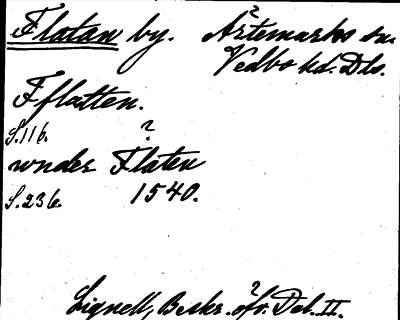 Flatan by. Årtemarks sn.
Vedbo hd. Dls.
Fflatten.
S. 116. ?
wnder Flaten
S. 236. 1540.
Lignell, Beskr. öfv. Dal. II.